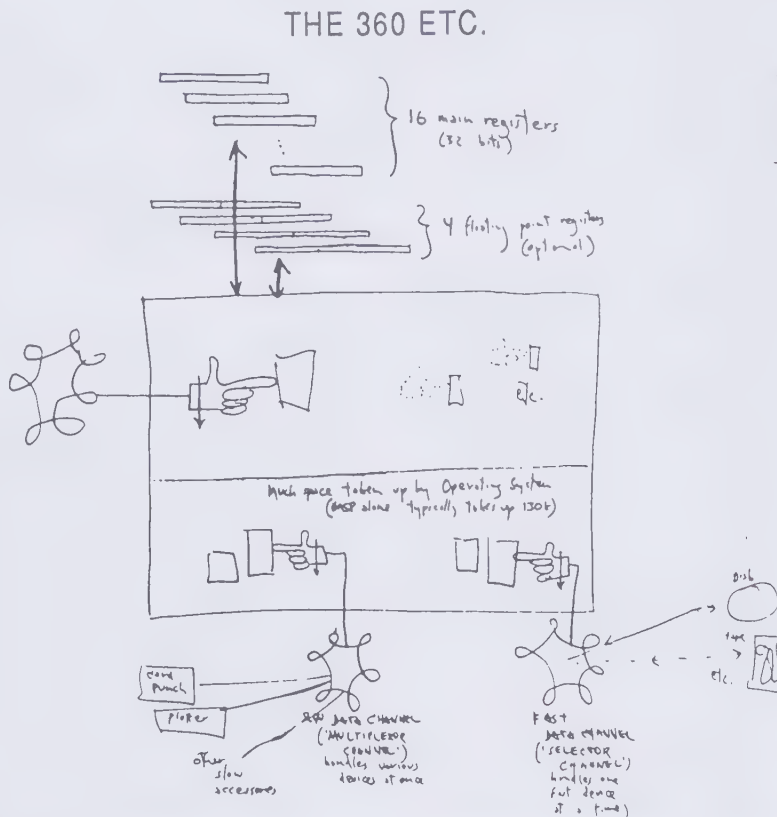 THE 360 ETC.
16 main registers
(32 bits)
4 floating point registers
(optional)
etc.
Much space taken up by Operating System
(HASP alone typically takes up 130k)
Disk
tape
etc.
card
punch
plotter
other
slow
accessories
DATA CHANNEL
('MULTIPLEXOR
CHANNEL')
handles various
devices at once
FAST
DATA CHANNEL
('SELECTOR
CHANNEL')
handles one
fast device
at a time)